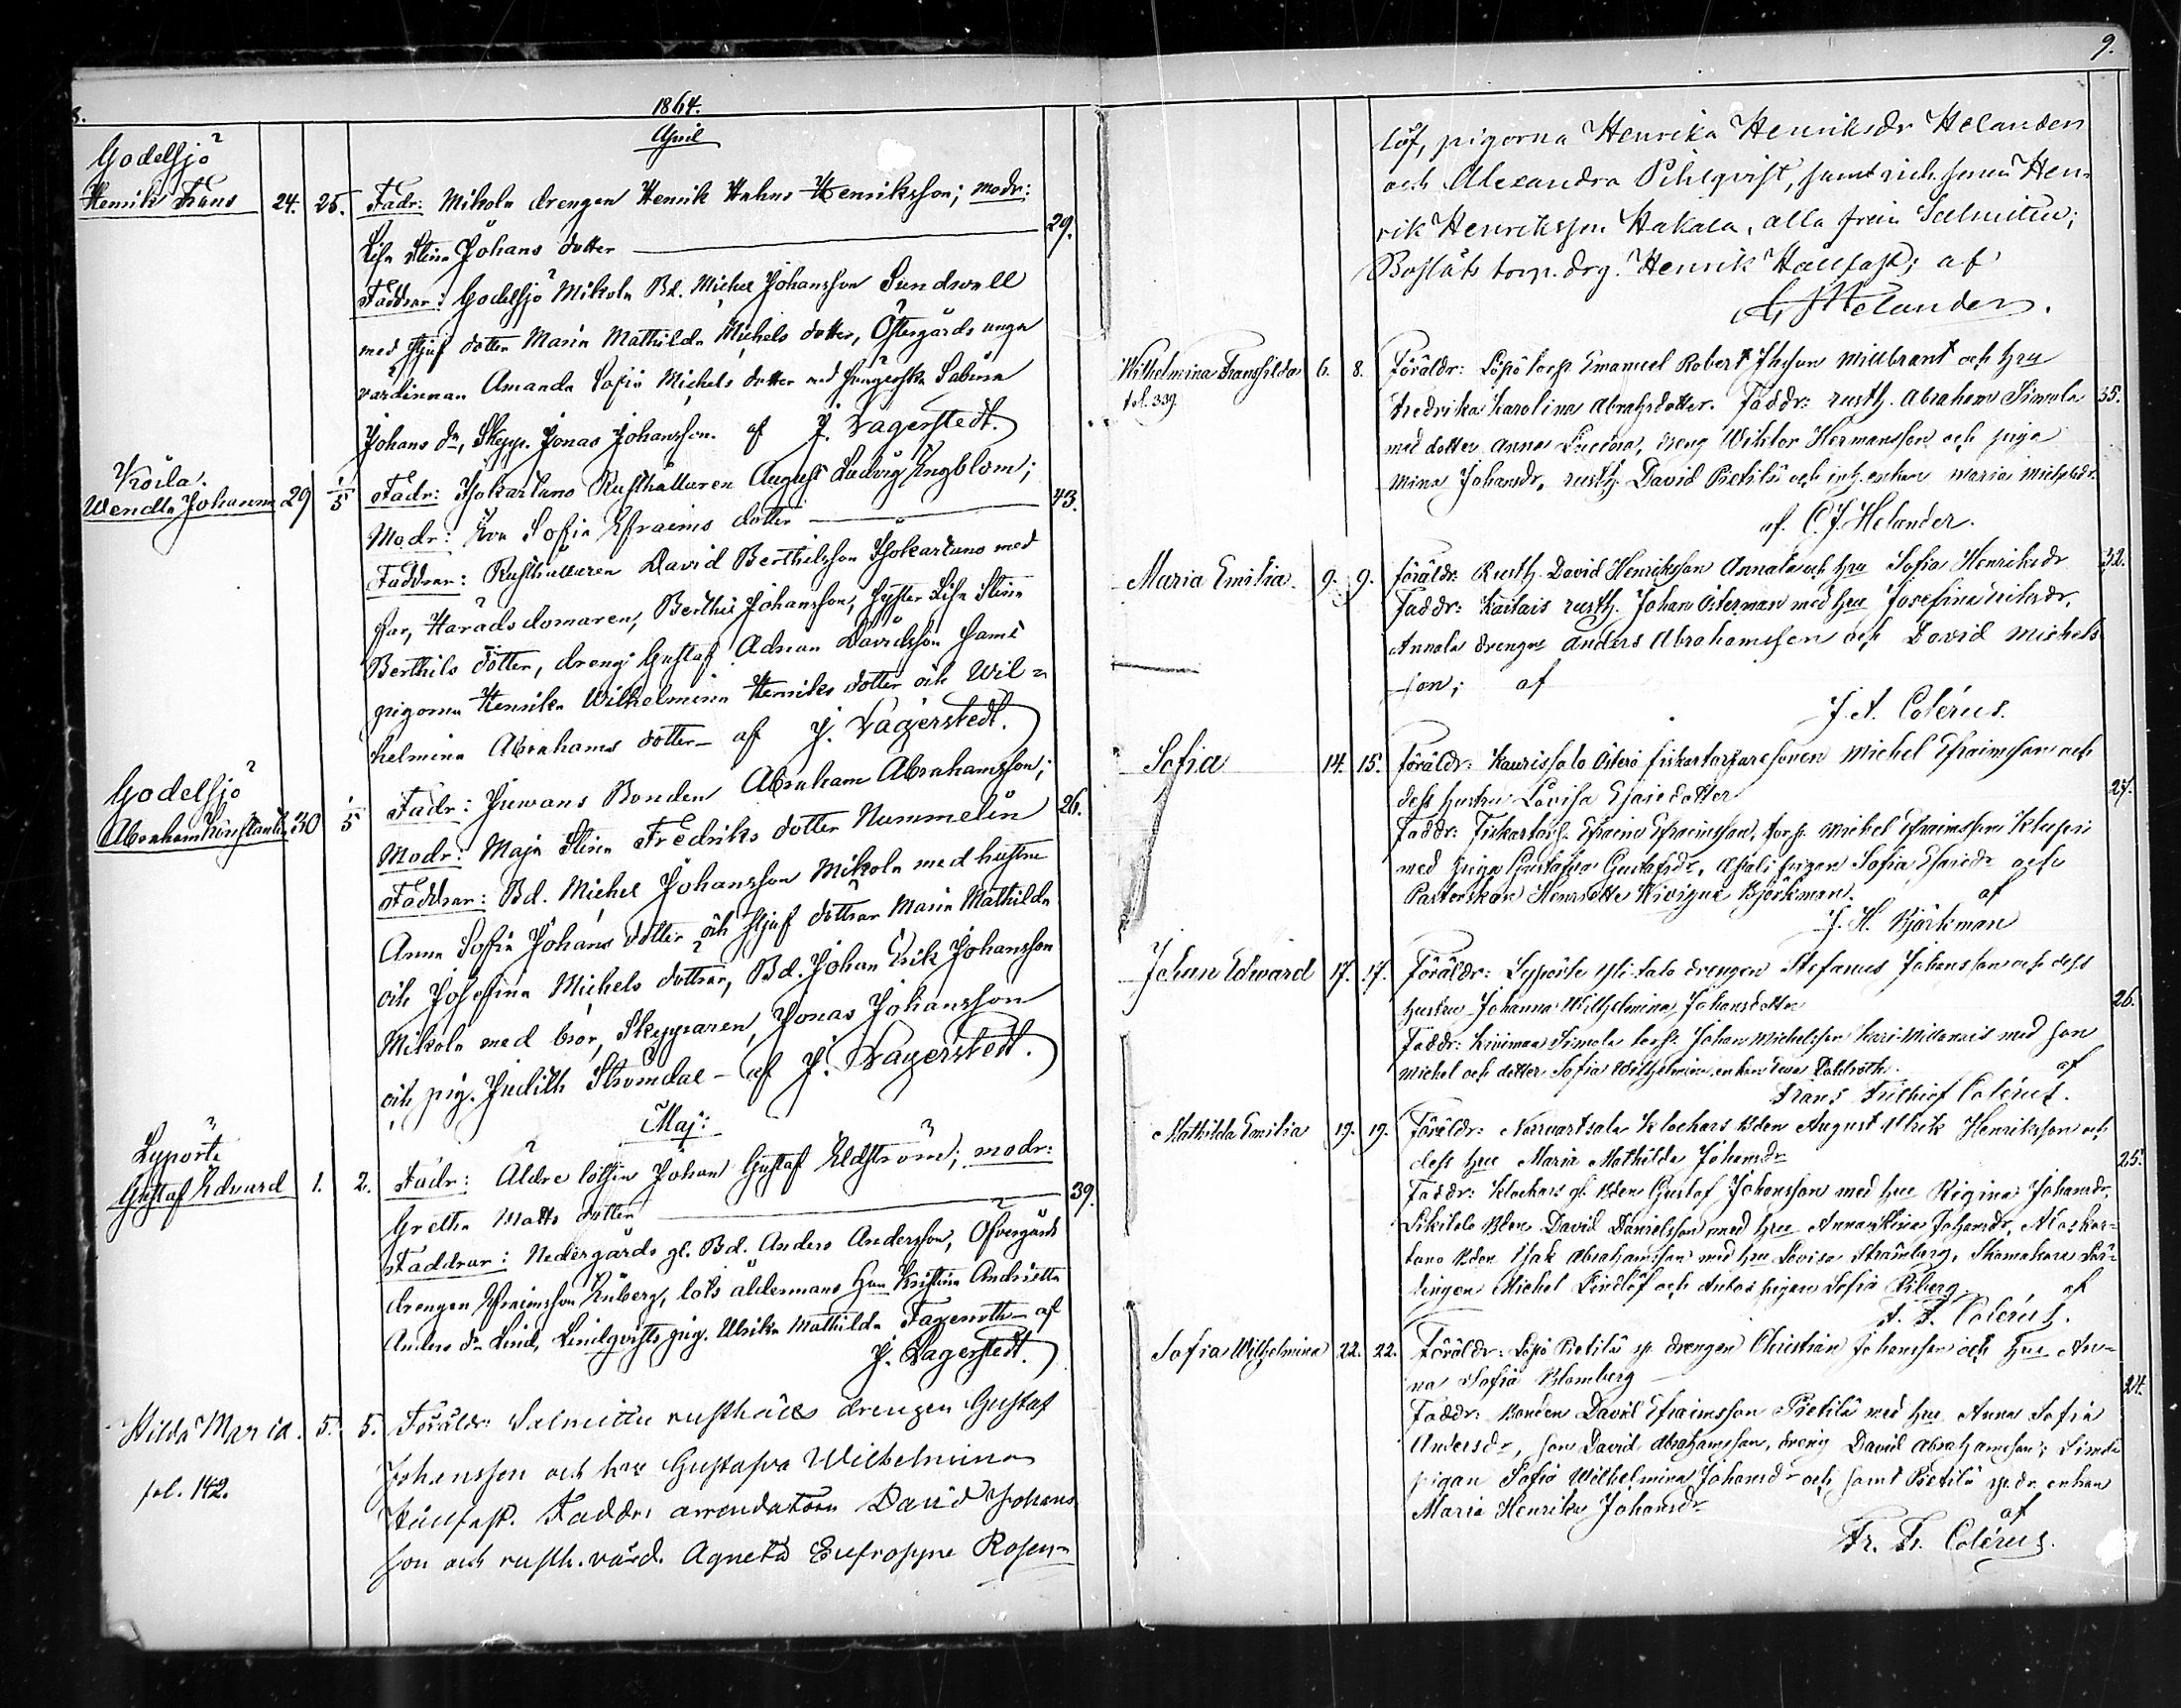 8.
1864.
April
Godelsjö
Henrik Frans 24. 25. Fadr: Mikola drengen Henrik Henriksson; modr:
Lisa Stina Johans dotter 29.
Faddrar: Godelsjö Mikola Bd. Michel Johansson Sundwall
med styf dotter Maria Mathilda Michels dotter, Östergårds unga
värdinnan Amanda Sofia Michels dotter med Sabina
Johans dr, Skepp. Jonas Johansson. af J. Lagerstedt.
Koila.
Wendla Johanna 29 1/5 Fadr: Isokartano Rusthållaren August Ludvig Engblom;
Modr: Eva Sofia Efraims dotter 43.
Faddrar: Rusthållaren David Berthilsson Isokartano med
far, Häradsdomaren, Berthil Johansson, syster Lisa Stina
Berthils dotter, dreng: Gustaf Adrian Davidsson samt
pigorna Henrika Wilhelmina Henriks dotter och Wil=
helmina Abrahams dotter – af J. Lagerstedt.
Godelsjö
Abraham Konstantin 30 1/5 Fadr: Juwans Bonden Abraham Abrahamsson;
Modr: Maja Stina Fredriks dotter Nummelin 26.
Faddrar: Bd. Michel Johansson Mikola med hustru
Anna Sofia Johans dotter och styf döttrar Maria Mathilda
och Josefina Michels döttrar, Bd. Johan Erik Johansson
Mikola med bror, Skepparen, Jonas Johansson
och pig. Judith Strömdal – af J. Lagerstedt.
Maj:
Lypörti
Gustaf Edvard 1. 2. Fadr: Äldre lotsen Johan Gustaf Eldström; modr:
Gretha Matts dotter 39.
Faddrar: Nedergårds gl. Bd. Anders Andersson, Öfvergårds
drengen Efraimsson Enberg, lots åldermans hu Kristina Andrietta
Anders dr Lind, Lindqvists pig. Ulrika Mathilda Fagerroth – af
J. Lagerstedt.
Hilda Maria. 5. 5. Föräldr: Salmittu rusthålls drengen Gustaf
fol. 142.
Johansson och hu Gustafva Wilhelmina
Hällfast. Faddr: arrendatorn David Johans
son och rusth. värd. Agneta Eufrosyne Rosen=
9.
löf, pigorna Henrika Henriksdr Helander
och Alexandra Pihlqvist, samt Hen
rik Henriksson Hakala, alla från Salmittu;
Boslåts torp. drg. Henrik Hällfast; af
C. J. Helander.
Wilhelmina Transhilda 6. 8. Föräldr: Löpö torp. Emanuel Robert Willbrant och hru
fol. 339.
Fredrika Karolina Abrahsdotter. Faddr: rusth. Abraham Simola 35.
med dotter Anna Lucina, dreng Wiktor Hermansson och piga
Mina Johansdr, rusth. David Pietilä och enkan Maria Michelsdr.
af. C. J. Helander.
Maria Emilia. 9. 9. Föräldr: Rusth. David Henriksson Annala och hru Sofia Henriksdr 32.
Faddr: Kaitais rusth. Johan Österman med hru Josefina Eriksdr,
Annala drengar Anders Abrahamsson och David Michels
son; af
F. F. Colérus.
Sofia 14. 15. Föräldr: Kaurissalo Österö fiskartorparesonen Michel Efraimsson och
dess hustru Lovisa Esaiedotter 27.
Faddr: Fiskartorp. Efraim Efraimsson, torp. Michel Efraimsson
med piga Gustafva Gustafsdr, pigan Sofia Esaiedr och
Pastorskan Henriette Björkman. af
J. H. Björkman
Johan Edward 17. 17. Föräldr: Lypörte Yli-Salo drengen Stefanus Johansson och dess
hustru Johanna Wilhelmina Johansdotter 26.
Faddr: Kivimaa Simola torp. Johan Michelsson med son
Michel och dotter Sofia Wilhelmina, enkan Ewa Dahlroth. af
Frans Frithiof Colérus.
Mathilda Emilia 19. 19. Föräldr: Klockars Bden August Ulrik Henriksson och
dess hru Maria Mathilda Johansdr 25.
Faddr: Klockars gl. Bden Gustaf Johansson med hru Regina Johansdr,
Bden David Danielsson med hru Anna Stina Johansdr,
tano Bden Isak Abrahamsson med hru Lovisa Strömberg, Skomakare Lär=
lingen Michel Lindlöf och pigan Sofia af
F. F. Colérus.
Sofia Wilhelmina 22. 22. Föräldr: Löpö Pietilä sp. drengen Christian Johansson och hru An=
na Sofia Blomberg 24.
Faddr: Bonden David Efraimsson Pietilä med hru Anna Sofia
Andersdr, son David Abrahamsson, dreng David Abrahamsson; Simola
pigan Sofia Wilhelmina Johansdr och samt Pietilä enkan
Maria Henrika Johansdr af
Fr. Fr. Colérus.